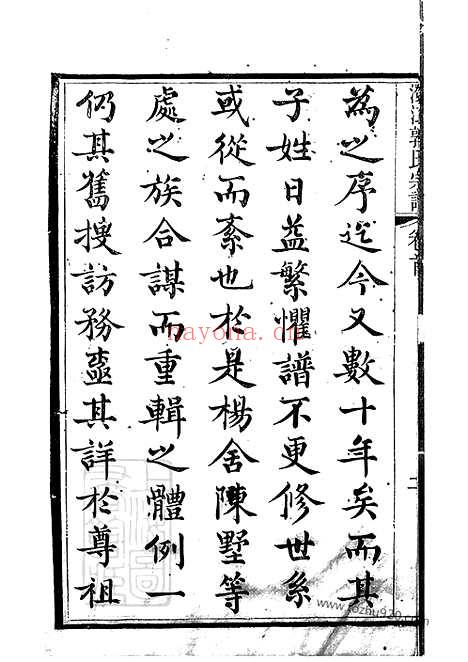 江郭氏宗譜 卷首 二
為之序迄今又數十年矣而其
子姓日益繁懼譜不更修世系
或從而紊也於是楊舍陳墅等
處之族合謀而重輯之體例一
仍其舊搜訪務盡其詳於尊祖
nayona.cn
www.fozhu920.com